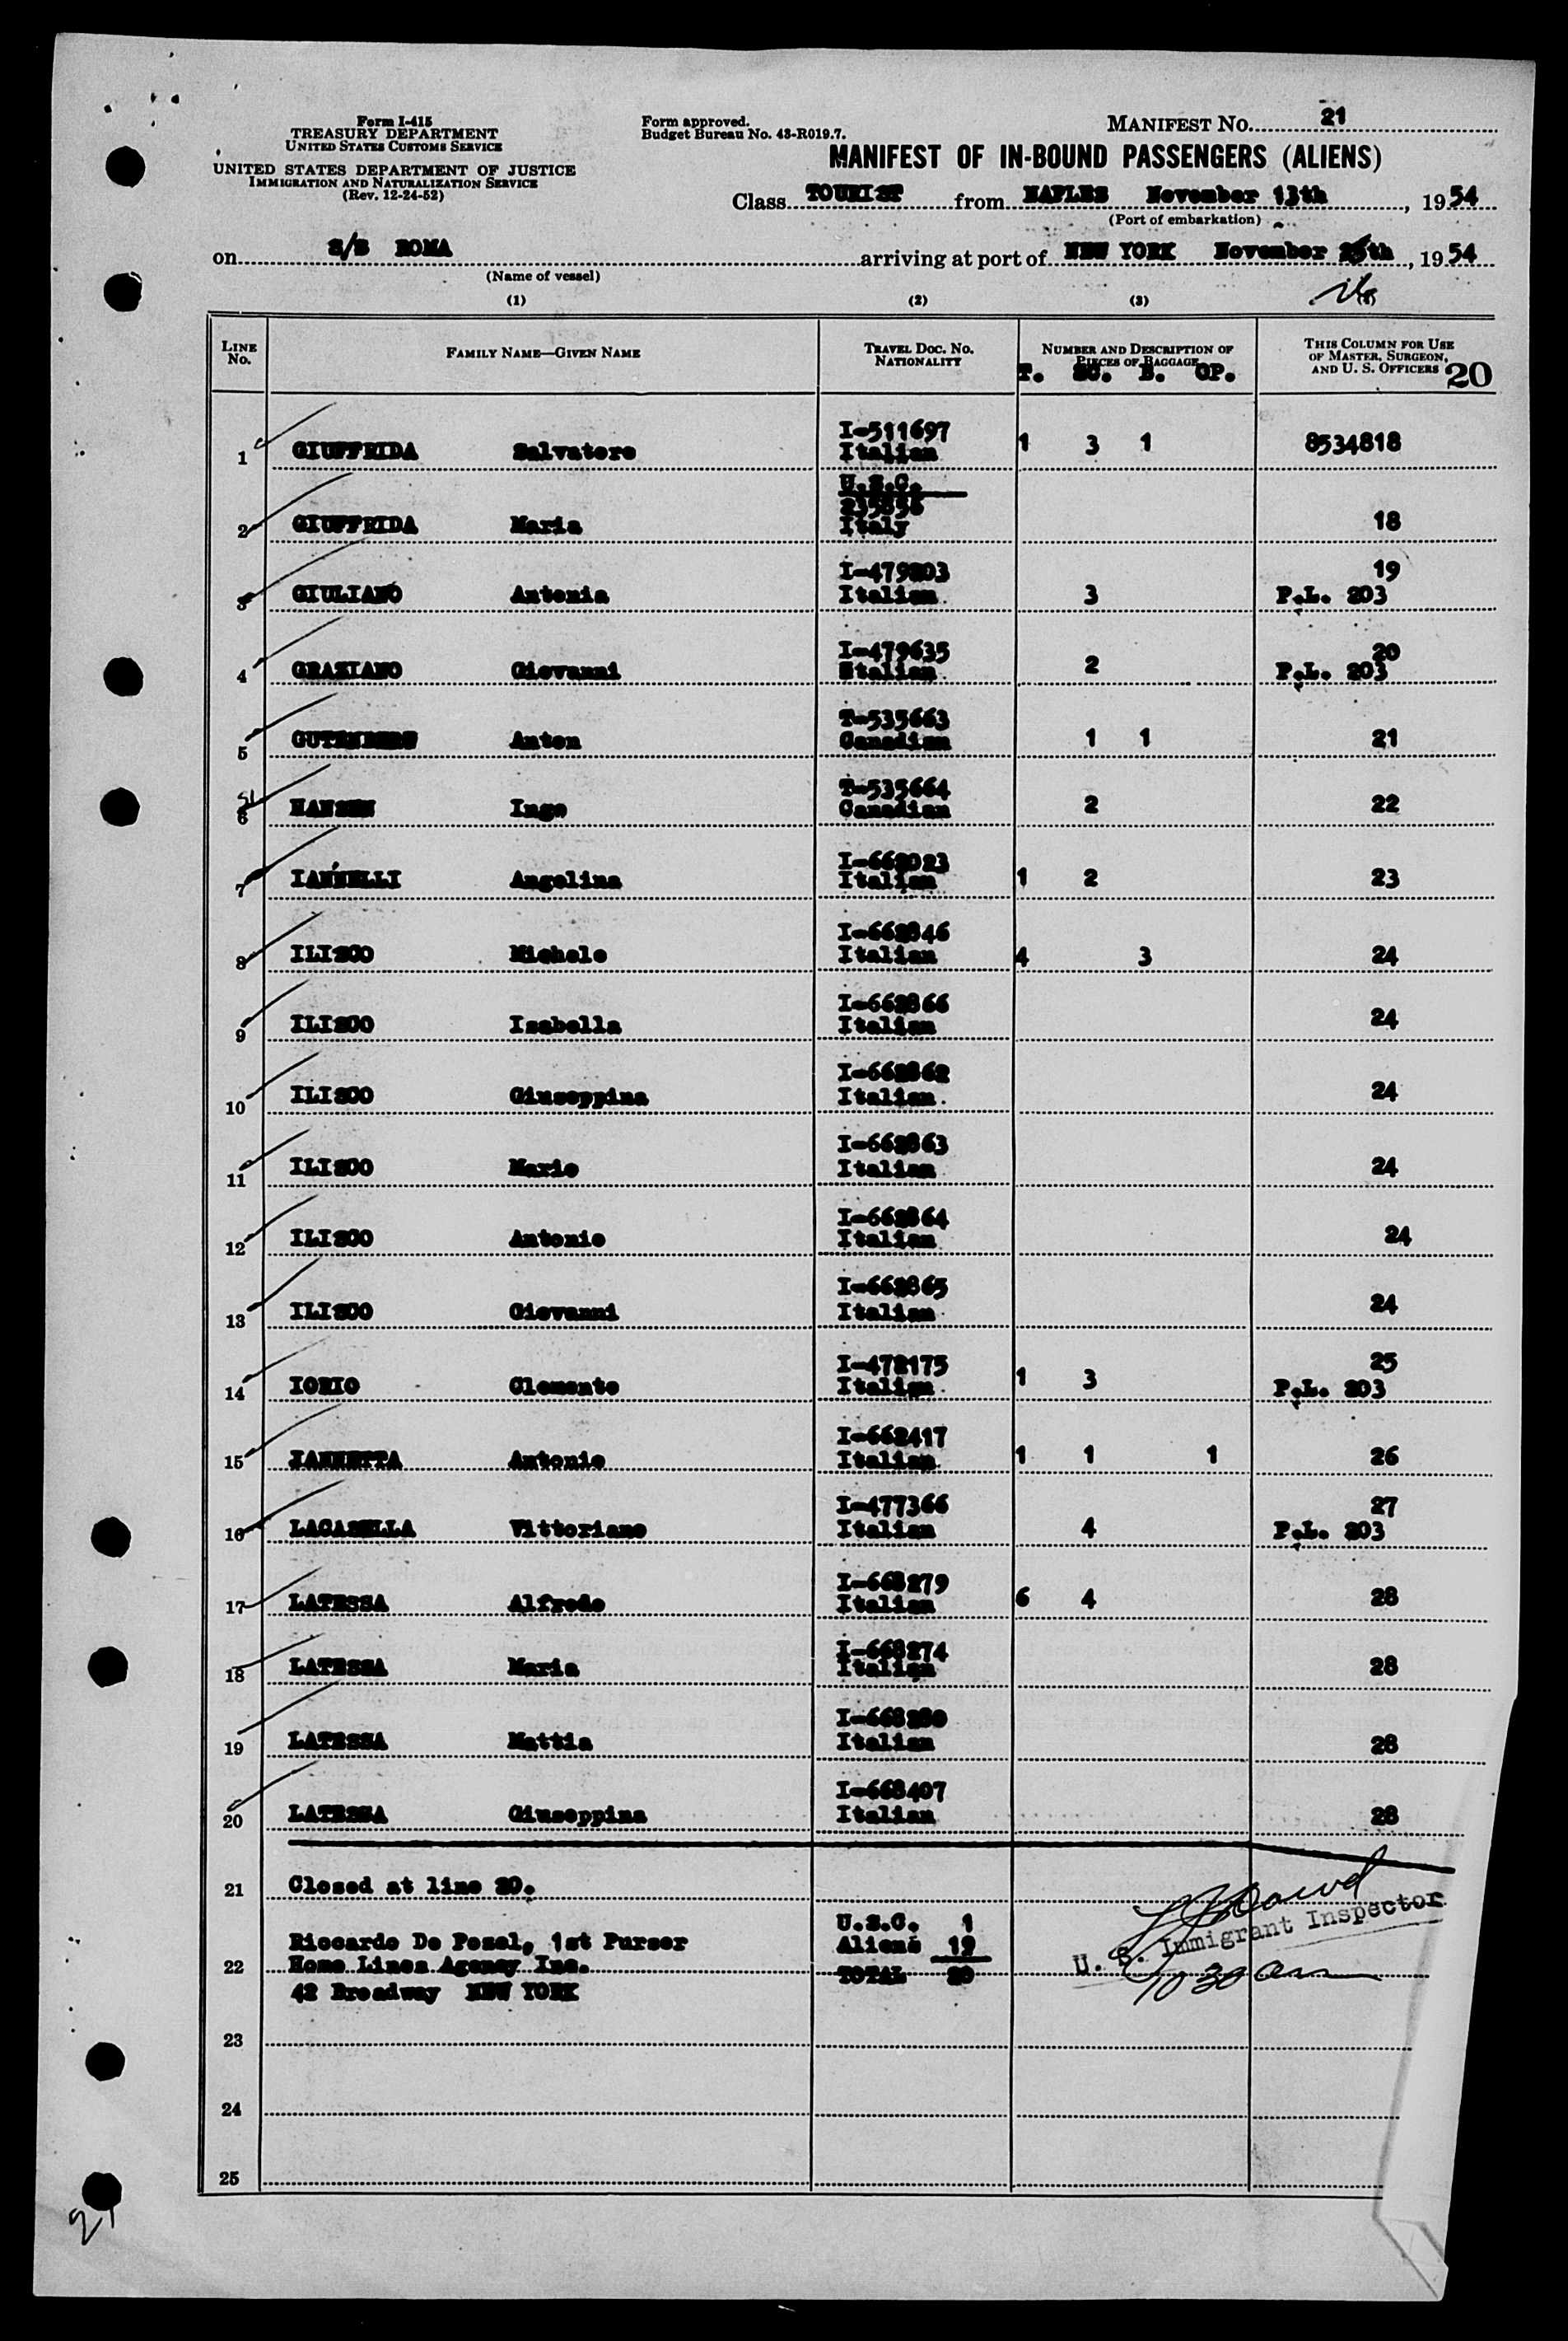 Form I-415
TREASURY DEPARTMENT
UNITED STATES CUSTOMS SERVICE
UNITED STATES DEPARTMENT OF JUSTICE
IMMIGRATION AND NATURALIZATION SERVICE
(Rev. 12-24-52)
Form approved.
Budget Bureau No. 43-R019.7.
MANIFEST NO. 21
MANIFEST OF IN-BOUND PASSENGERS (ALIENS)
Class TOURIST from NAPLES November 13th, 1954
(Port of embarkation)
on S/S ROMA arriving at port of NEW YORK November th, 1954
(Name of vessel)
(1) (2) (3)
LINE No. FAMILY NAME—GIVEN NAME TRAVEL DOC. NO. NATIONALITY NUMBER AND DESCRIPTION OF PIECES OF BAGGAGE THIS COLUMN FOR USE OF MASTER, SURGEON, AND U. S. OFFICERS 20
T. SC. B. GP.
1 GIUFFRIDA Salvatore I-511697 Italian 1 3 1 8534818
2 GIUFFRIDA Maria U.S.C. 235856 Italy 18
3 GIULIANO Antonia I-479803 Italian 3 19 P.L. 203
4 GRAZIANO Giovanni I-479635 Italian 2 20 P.L. 203
5 GUTENBERG Anton T-535663 Canadian 1 1 21
6 HANSEN Inge T-535664 Canadian 2 22
7 IANNELLI Angelina I-668023 Italian 1 2 23
8 ILISCO Michele I-662846 Italian 4 3 24
9 ILISCO Isabella I-662866 Italian 24
10 ILISCO Giuseppina I-662862 Italian 24
11 ILISCO Mario I-662863 Italian 24
12 ILISCO Antonio I-662864 Italian 24
13 ILISCO Giovanni I-662865 Italian 24
14 IORIO Clemente I-472175 Italian 1 3 25 P.L. 203
15 IANNETTA Antonio I-662417 Italian 1 1 1 26
16 LACASELLA Vittoriano I-477366 Italian 4 27 P.L. 203
17 LATESSA Alfredo I-668279 Italian 6 4 28
18 LATESSA Maria I-668274 Italian 28
19 LATESSA Mattia I-668280 Italian 28
20 LATESSA Giuseppina I-668407 Italian 28
21 Closed at line 20.
22 Riccardo De Pozel, 1st Purser
Home Lines Agency Inc.
42 Broadway NEW YORK
U.S.C. 1
Aliens 19
TOTAL 20
U. S. Immigrant Inspector
10 30 am
23
24
25
21